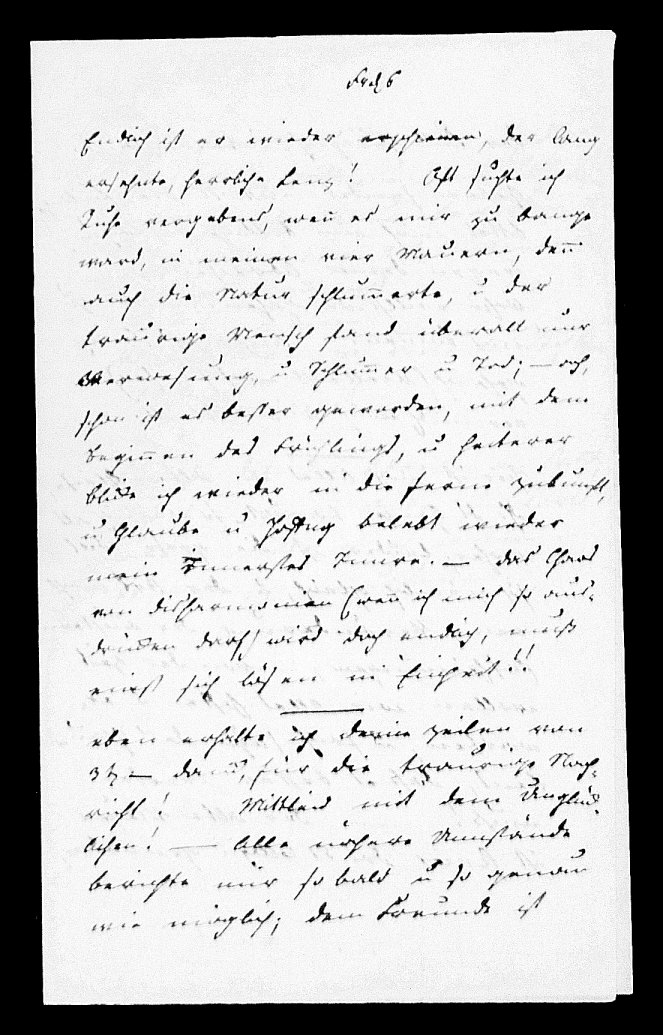 Frd. 6
Endlich ist er wieder erschienen, der lang
ersehnte, herrliche Lenz! Oft suchte ich
Ruhe vergebens, wenn es mir zu bange
ward, in meinen vier Mauern, denn
auch die Natur schlummerte, u der
traurige Mensch fand überall nur
Verwesung, u Schlummer u Tod; — doch,
schon ist es besser geworden, mit dem
Beginnen des Frühlings, u heiterer
blicke ich wieder in die ferne Zukunft,
u Glaube u Hoffng belebt wieder
mein innerstes Innre. — das Chaos
von disharmonien (wenn ich mich so aus-
drücken darf) wird doch endlich, muß
einst sich lösen in Einheit!!
eben erhalte ich deine Zeilen von
3t. — dank, für die traurige Nach-
richt! Mitleid mit dem Unglück-
lichen! — Alle nähere Umstände
berichte mir so bald u so genau
wie möglich; dem Freunde ist